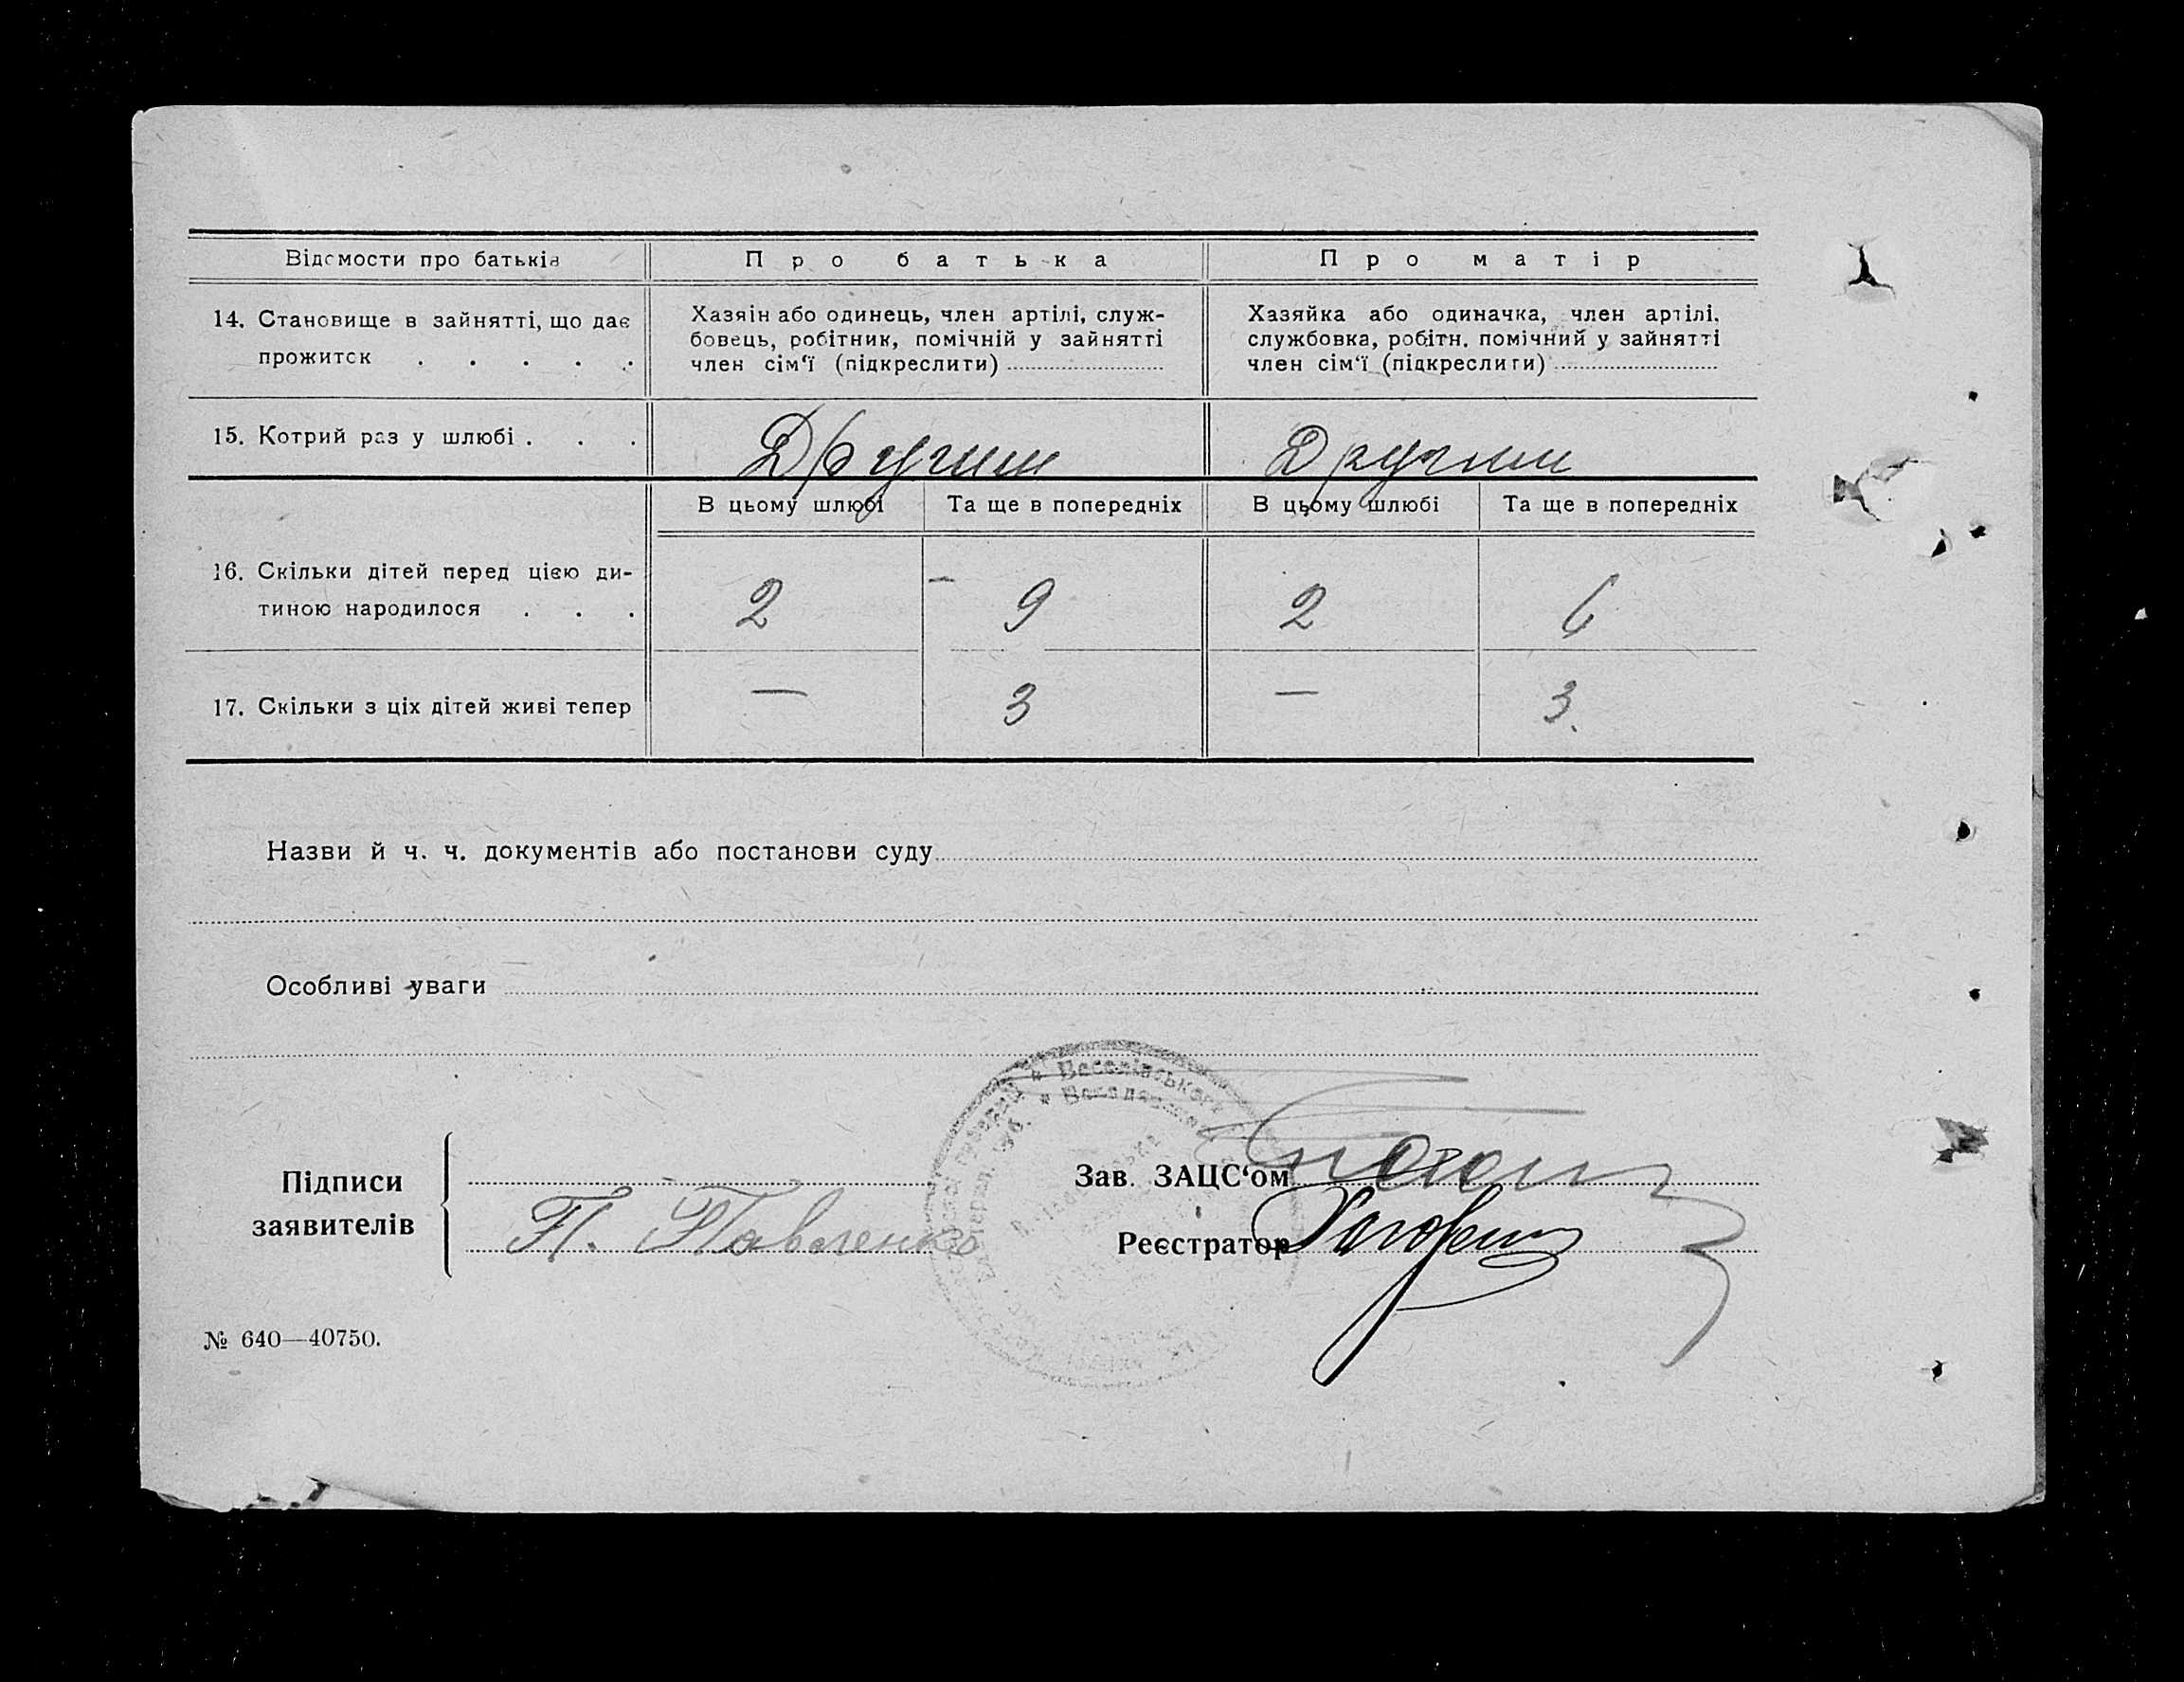 Відомости про батьків
Про батька
Про матір
14. Становище в зайнятті, що дає
прожиток . . . . .
Хазяін або одинець, член артілі, служ-
бовець, робітник, помічній у зайнятті
член сім‘ї (підкреслити)
Хазяйка або одиначка, член артілі,
службовка, робітн. помічний у зайнятті
член сім‘ї (підкреслити)
15. Котрий раз у шлюбі . . .
Другим
Другим
В цьому шлюбі
Та ще в попередніх
В цьому шлюбі
Та ще в попередніх
16. Скільки дітей перед цією ди-
тиною народилося . . .
2
9
2
6
17. Скільки з ціх дітей живі тепер
—
3
—
3.
Назви й ч. ч. документів або постанови суду
Особливі уваги
Підписи
заявителів
П. Павленко
Зав. ЗАЦС‘ом
Реєстратор
№ 640—40750.